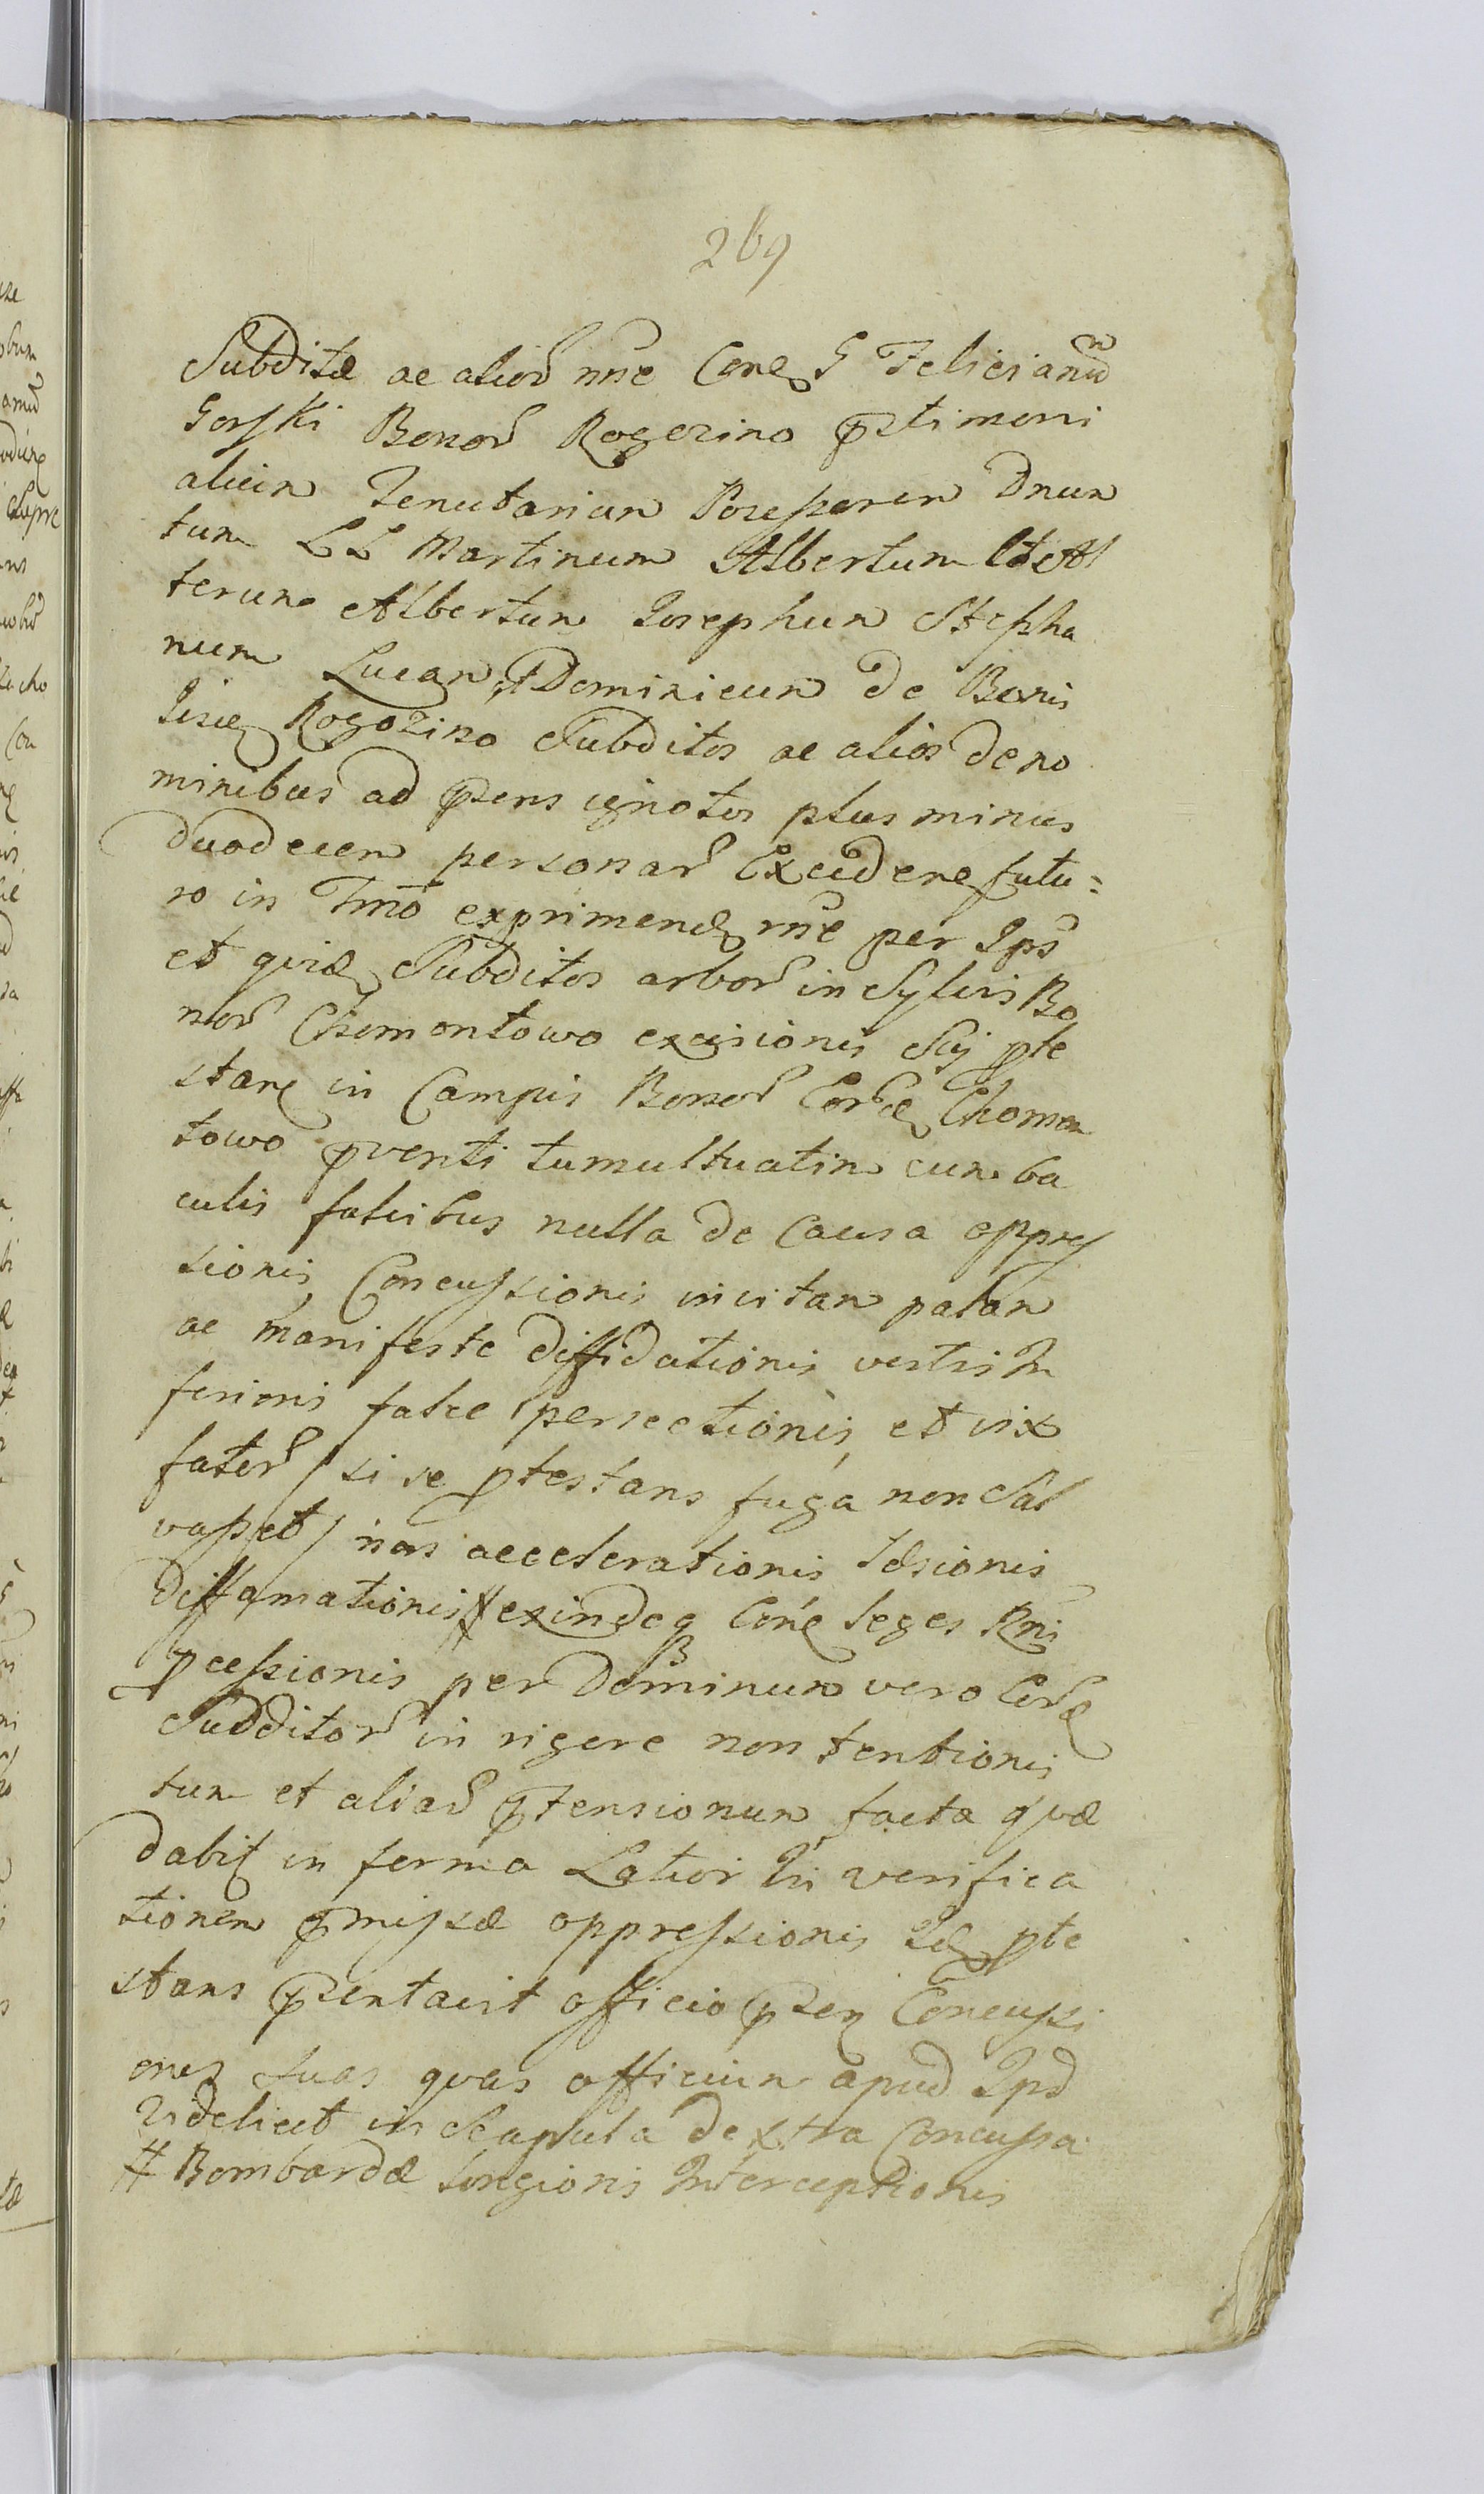 269
Subditæ ac alior nne Conẽ G Felicianũ
Gorski Bonor Rogozino prtimoni
alium Tenutarium Possessorem Dnum
tum LL Martinum Albertum et Al
terum Albertum Josephum Stepha
num Lucam et Dominicum de Bonis
Rogozino Subditos ac alios de no
minibus ad præns ignotos plus minus
duodecem personar Excedere futu=
ro in Tmõ exprimend nne per Ips
et quid Subditos arbor in Sylvis Bo
nor Chomontowo excisionis Sui prte
stans in Campis Bonor Eord Chomon
towo prventi tumultuatim cum ba
culis falcibus nulla de Causa oppres
sionis Concussionis in vitam palam
ac manifeste diffidationis vestis In
ferioris falce persectionis, et vix
fator / si se prtestans fuga non Sal
vasset / non accelerationis læsionis
diffamationis # exindeq Conẽ leges Rni
prcessionis per Dominum vero Eord
Subditor in rigore non tentionis
tum et aliar prtensionum facta quæ
dabit in forma Latiori In verifica
tionem præmissæ oppressionis Id prte
stans prsentavit officio prsen Concussi
ones suas quas officium apud Ips
Videlicet in Scapula dextra Concussa
# Bombardæ longioris Interceptionis